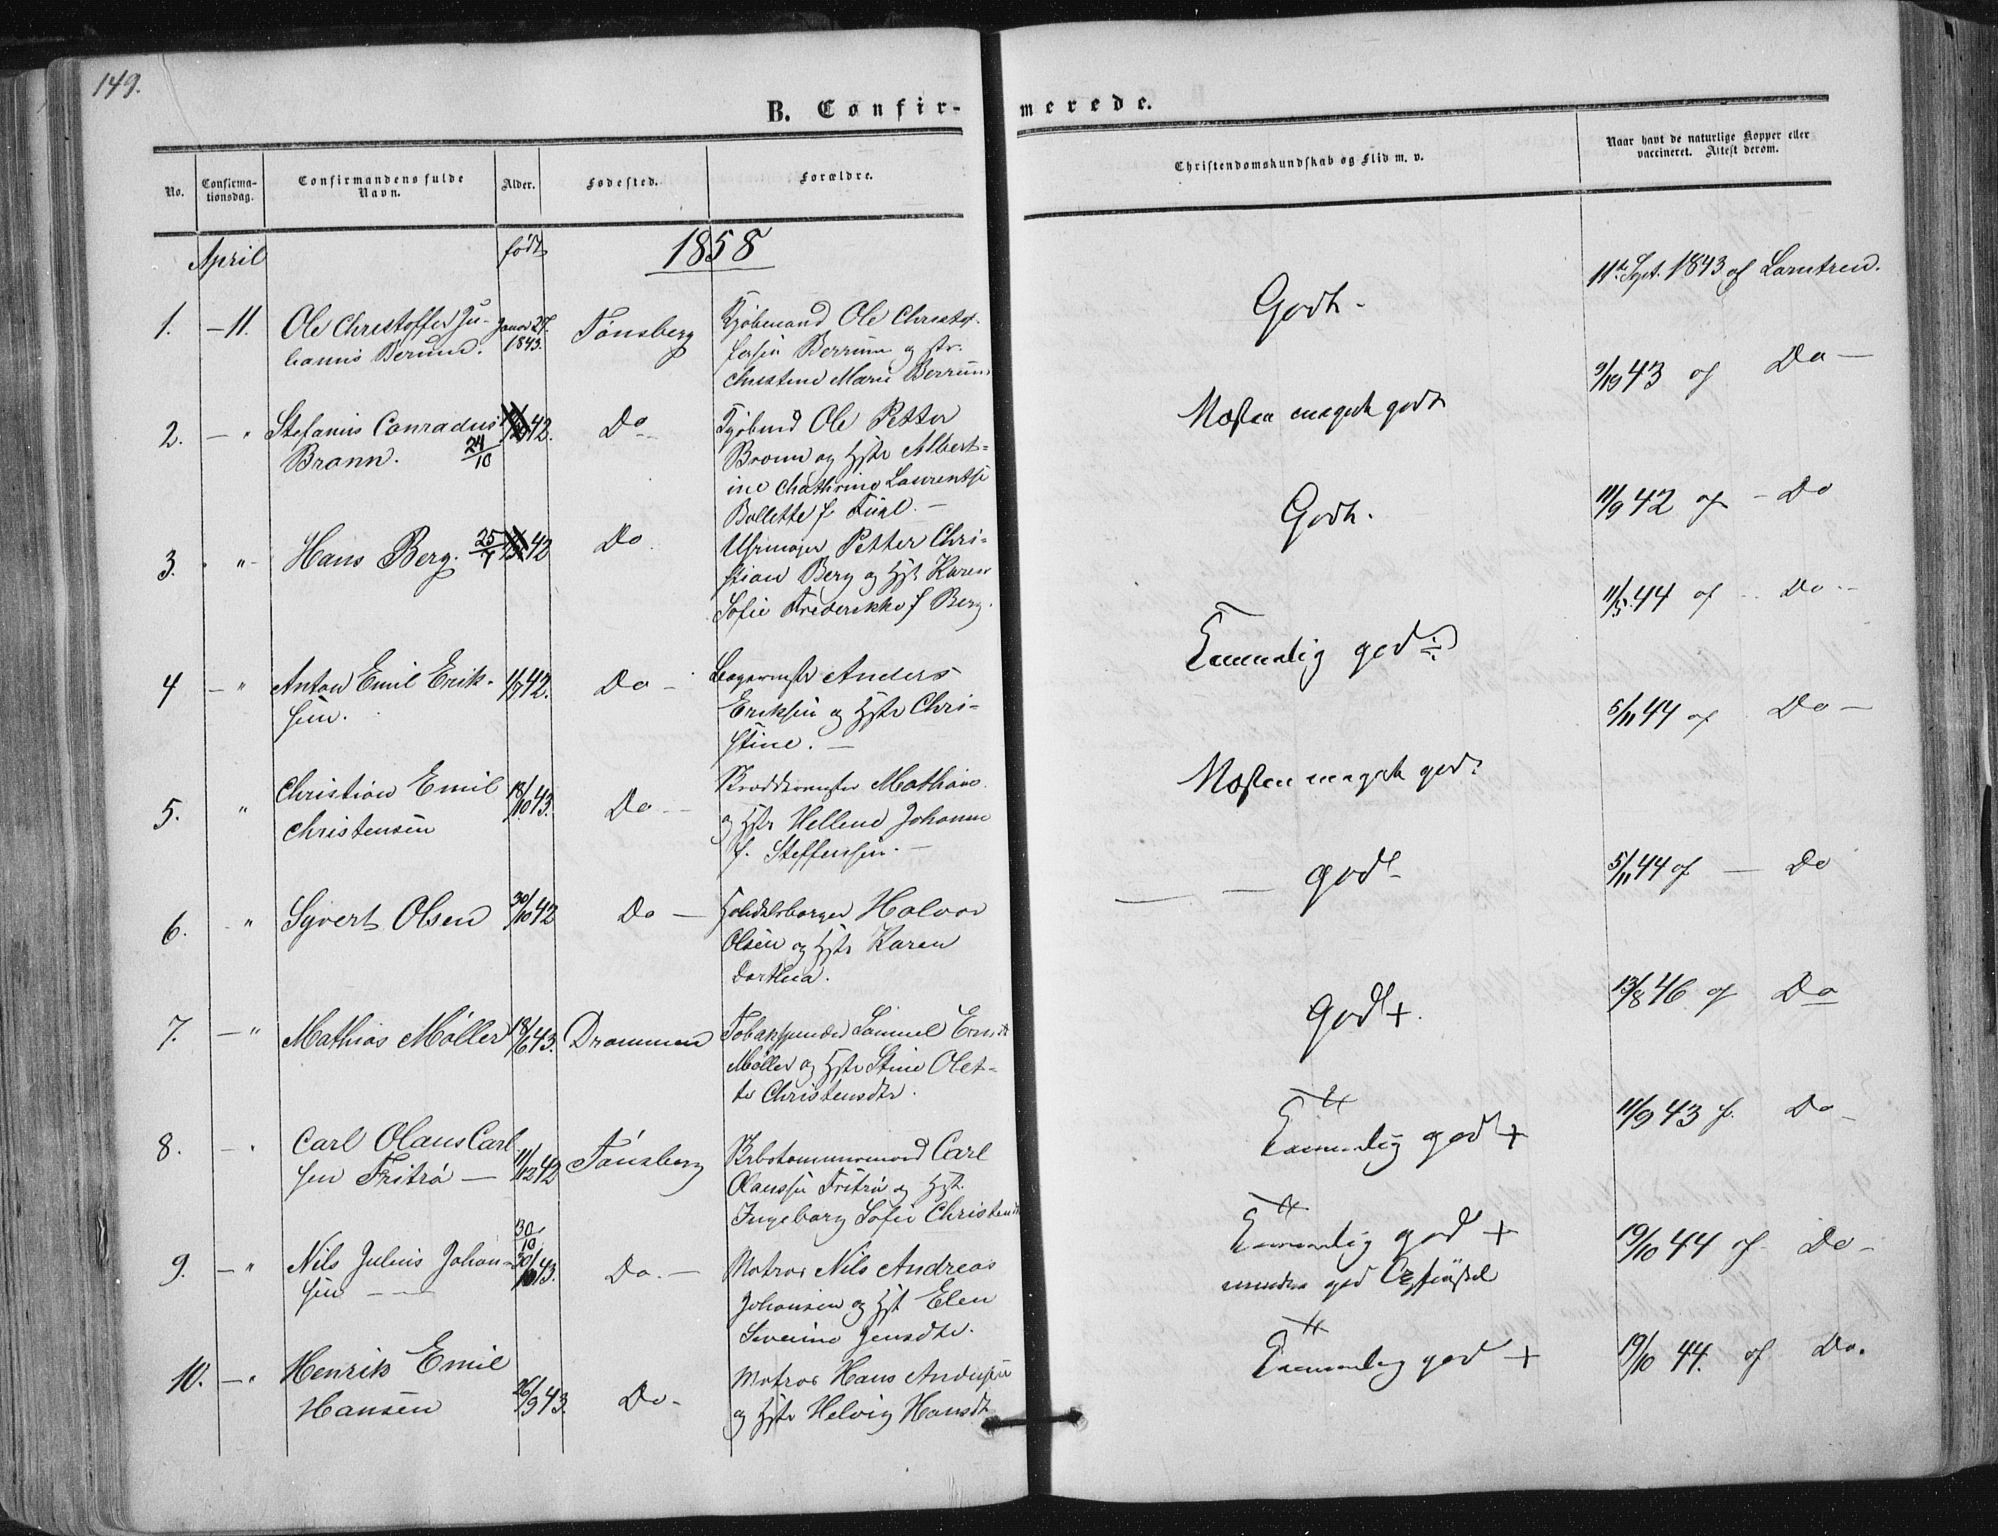 149.
B. Confir-
merede.
No.
Confirma-
tionsdag.
Confirmandens fulde
Navn.
Alder.
Fødested.
Forældre.
Christendomskundskab og Flid m. v.
Naar havt de naturlige Kopper eller
vaccineret. Attest derom.
April
født
1858
1. — 11. Ole Christoffer Ju-
lianus Berum.
Januar 27
1843.
Tønsberg
Kjøbmand Ole Christof-
fersen Berrum og
Christine Marie Berrum.
Godt.
11te Sept. 1843 af
2. — " Stefanus Conradus
Bronn. 24/10
42.
Do
Kjøbmd Ole Petter
Bronn og Hstr Albert-
ine Cathrine Laurentse
Bollette f.
Næsten meget godt
9/19 43 af Do —
3. " Hans Berg. 25/7
42
Do
Urmager Petter Chri-
stian Berg og Hst Karen
Sofie Frederikke f Berg.
Godt.
11/9 42 af — Do
4 — " Anton Emil Erik-
sen.
1/7 42.
Do —
Anders
Eriksen og Hstr Chri-
stine. —
Temmelig god
11/5 44 af Do —
5. " Christian Emil
Christensen
18/10 43.
Do —
Mathias
og Hstr Hellene Johanne
f. Steffensen. —
Næsten meget god
5/11 44 af Do —
6. " Syvert Olsen
30/10 42
Do —
Halvor
Olsen og Hstr Karen
Dorthea.
— — god
5/11 44 af — Do
7. — " Mathias Møller
18/6 43.
Drammen
Tobakspinder Samuel Ernst
Møller og Hstr Stine Olet-
te Christensdtr.
god +.
13/8 46 af Do
8. — " Carl Olaus Carl
sen Fritrø —
11/12 42
Tønsberg
Carl
Olaussen Fritrø og Hst.
Ingeborg Sofie Christensd
Temmelig god +
11/9 43 f. Do —
9. — " Nils Julius Johan-
sen — —
30/10
43.
Do. —
Matros Nils Andreas
Johansen og Hst Elen
Severine Jensdtr.
Temmelig god +
mindre god
19/10 44 af Do —
10. — " Henrik Emil
Hansen
26/9 43.
Do —
Matros Hans Andersen
og Hstr Helvig Hansdtr
Temmelig god +
19/10 44. af Do.